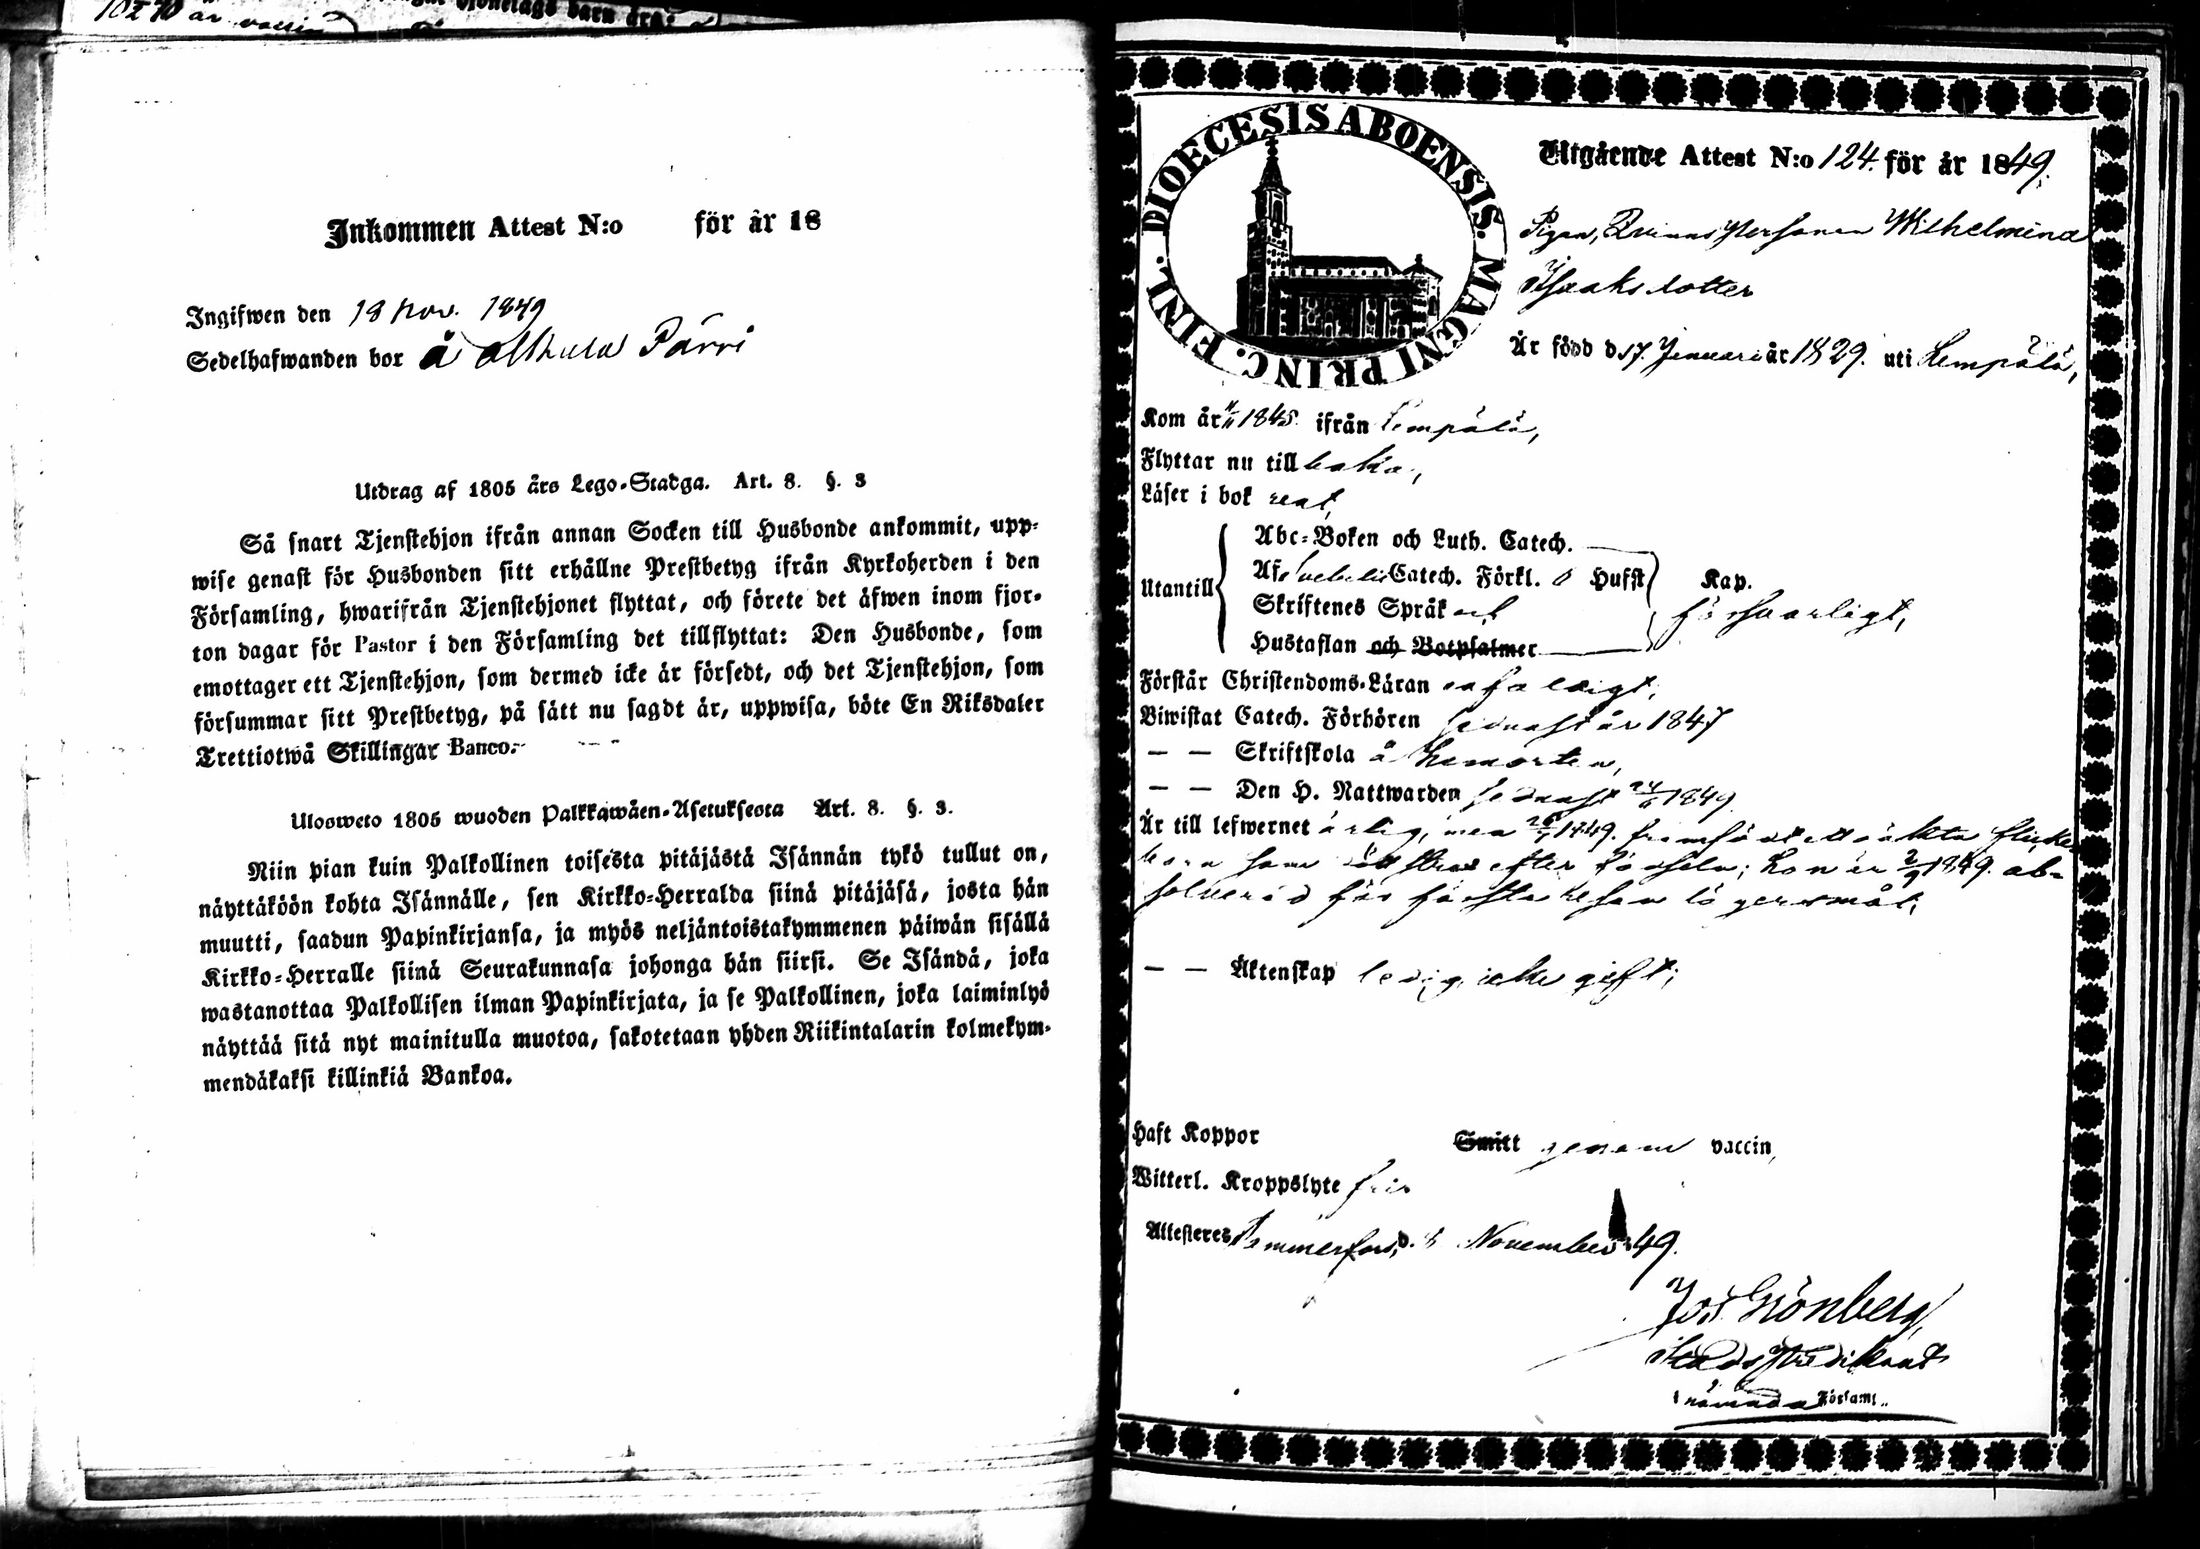 Inkommen Attest N:o för år 18
Ingifwen den 18 Nov. 1849
Sedelhafwanden bor å Alkula Pärri
Utdrag af 1805 års Lego-Stadga. Art. 8. §. 3
Så snart Tjenstehjon ifrån annan Socken till Husbonde ankommit, upp-
wise genast för Husbonden sitt erhållne Prestbetyg ifrån Kyrkoherden i den
Församling, hwarifrån Tjenstehjonet flyttat, och förete det äfwen inom fjor-
ton dagar för Pastor i den Församling det tillflyttat: Den Husbonde, som
emottager ett Tjenstehjon, som dermed icke är försedt, och det Tjenstehjon, som
försummar sitt Prestbetyg, på sätt nu sagdt är, uppwisa, böte En Riksdaler
Trettiotwå Skillingar Banco.
Ulosweto 1805 wuoden Palkkawäen-Asetuksesta Art. 8. §. 3.
Niin pian kuin Palkollinen toisesta pitäjästä Isännän tykö tullut on,
näyttäköön kohta Isännälle, sen Kirkko-Herralda siinä pitäjäsä, josta hän
muutti, saadun Papinkirjansa, ja myös neljäntoistakymmenen päiwän sisällä
Kirkko-Herralle siinä Seurakunnasa johonga hän siirsi. Se Isändä, joka
wastanottaa Palkollisen ilman Papinkirjata, ja se Palkollinen, joka laiminlyö
näyttää sitä nyt mainitulla muotoa, sakotetaan yhden Riikintalarin kolmekym-
mendäkaksi killinkiä Bankoa.
DIOECESIS ABOENSIS. MAGNI PRINC. FINL.
Utgående Attest N:o 124 för år 1849.
Pigan, Qvinnspersonen Wilhelmina
Isaksdotter
Är född d 17. Januari år 1829. uti Lempälä,
Kom år 1845 ifrån Lempälä,
Flyttar nu till baka,
Läser i bok rent,
Utantill
Abc-Boken och Luth. Catech.
Af Svebelii Catech. Förkl. o Hufst Kap.
Skriftenes Språk och försvarligt,
Hustaflan och Botpsalmer
Förstår Christendoms-Läran enfaldigt;
Biwistat Catech. Förhören sednast år 1847
— — Skriftskola å hemorten,
— — Den H. Nattwarden sednast 24/6 1849.
Är till lefwernet ärlig, men 1849. framfödt ett oäkta flicke
barn som dött strax efter födseln; hon är 2/9 1849. ab-
solverad för första resan lägersmål;
— — Äktenskap ledig, icke gift;
Haft Koppor Smitt genom vaccin,
Witterl. Kroppslyte fri
Attesteres Tammerfors, d. 8 November 49.
Jos Grönberg,
Stadspredikant
i nämnda Församl.